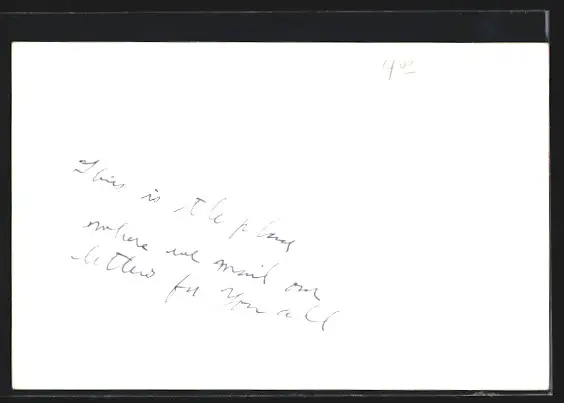 4 00
This is the place
where we mail our
letters for you all